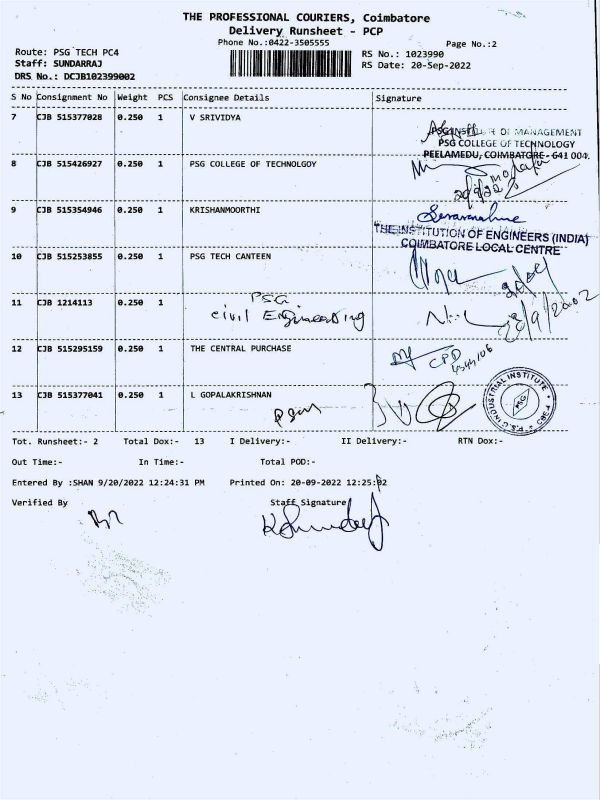 THE PROFESSIONAL COURIERS, Coimbatore
Delivery Runsheet - PCP
Phone No.:0422-3505555
Page No.:2
Route: PSG TECH PC4
RS No.: 1023990
Staff: SUNDARRAJ
RS Date: 20-Sep-2022
DRS No.: DCJB102399002
S No Consignment No Weight PCS Consignee Details Signature
7 CJB 515377028 0.250 1 V SRIVIDYA
PSG INSTITUTE OF MANAGEMENT
PSG COLLEGE OF TECHNOLOGY
PEELAMEDU, COIMBATORE - 641 004.
8 CJB 515426927 0.250 1 PSG COLLEGE OF TECHNOLGOY
9 CJB 515354946 0.250 1 KRISHANMOORTHI
THE INSTITUTION OF ENGINEERS (INDIA)
COIMBATORE LOCAL CENTRE
10 CJB 515253855 0.250 1 PSG TECH CANTEEN
11 CJB 1214113 0.250 1 PSG
civil Engineering
12 CJB 515295159 0.250 1 THE CENTRAL PURCHASE
CPD
13 CJB 515377041 0.250 1 L GOPALAKRISHNAN
PSG INDUSTRIAL INSTITUTE
Tot. Runsheet:- 2 Total Dox:- 13 I Delivery:- II Delivery:- RTN Dox:-
Out Time:- In Time:- Total POD:-
Entered By :SHAN 9/20/2022 12:24:31 PM Printed On: 20-09-2022 12:25:02
Verified By Staff Signature